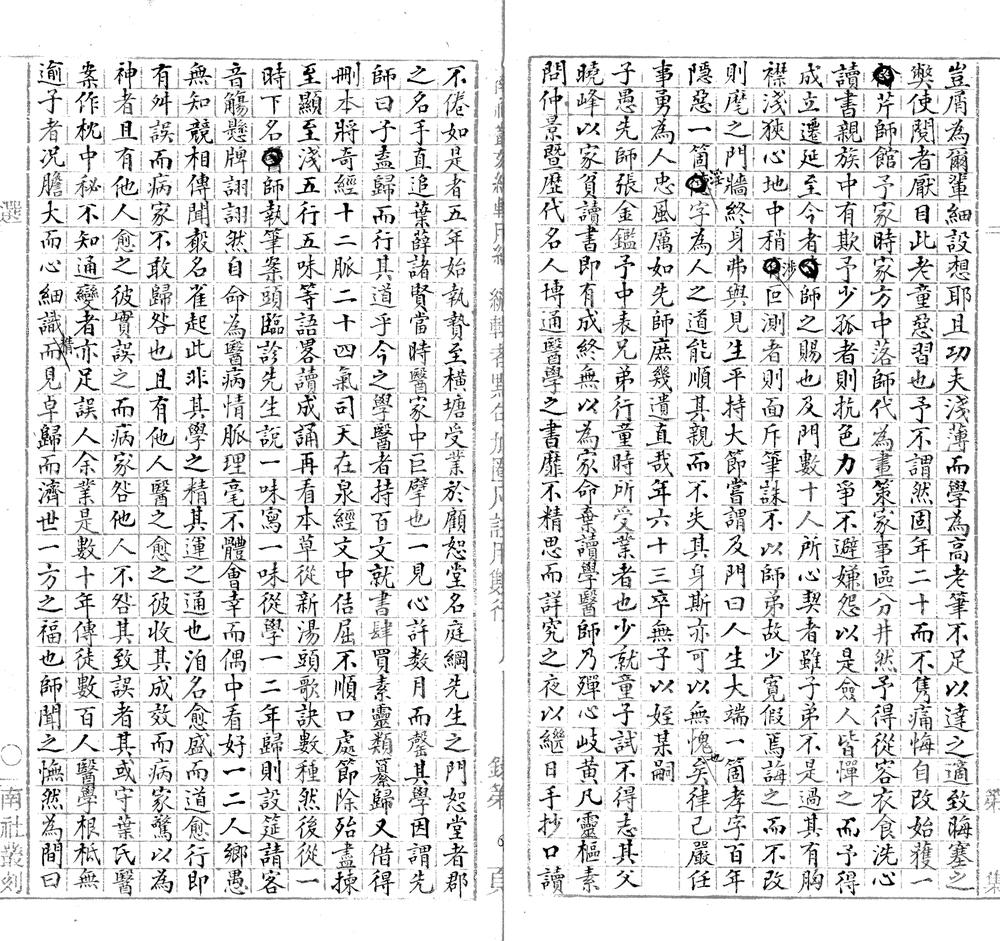 豈屑為爾輩細設想耶且功夫淺薄而學為高老筆不足以達之適致晦塞之
獘使閱者厭目此老童惡習也予不謂然固年二十而不雋痛悔自改始獲一
芹師館予家時家方中落師代為畫策家事區分井然予得從容衣食洗心
讀書親族中有欺予少孤者則抗色力爭不避嫌怨以是僉人皆憚之而予得
成立遷延至今者師之賜也及門數十人所心契者雖子弟不是過其有胸
襟淺狹心地中稍涉叵測者則面斥筆誅不以師弟故少寬假焉誨之而不改
則麾之門牆終身弗與見生平持大節嘗謂及門曰人生大端一箇孝字百年
隱惡一箇淫字為人之道能順其親而不失其身斯亦可以無愧也矣律己嚴任
事勇為人忠風厲如先師庶幾遺直哉年六十三卒無子以姪某嗣
子愚先師張金鑑予中表兄弟行童時所受業者也少就童子試不得志其父
曉峰以家貧讀書即有成終無以為家命棄讀學醫師乃殫心岐黃凡靈樞素
問仲景暨歷代名人博通醫學之書靡不精思而詳究之夜以繼日手抄口讀
第 集
不倦如是者五年始執贄至橫塘受業於顧恕堂名庭綱先生之門恕堂者郡
之名手直追葉薛諸賢當時醫家中巨擘也一見心許数月而罄其學因謂先
師曰子盍歸而行其道乎今之學醫者持百文就書肆買素靈類纂歸又借得
刪本將奇經十二脈二十四氣司天在泉經文中佶屈不順口處節除殆盡揀
至顯至淺五行五味等語畧讀成誦再看本草從新湯頭歌訣數種然後從一
時下名醫師執筆案頭臨診先生說一味寫一味從學一二年歸則設筵請客
音觴懸牌詡詡然自命為醫病情脈理毫不體會幸而偶中看好一二人鄉愚
無知競相傳聞聲名雀起此非其學之精其運之通也洎名愈盛而道愈行即
有舛誤而病家不敢歸咎也且有他人醫之愈之彼收其成效而病家驚以為
神者且有他人愈之彼實誤之而病家咎他人不咎其致誤者其或守葉氏醫
案作枕中秘不知通變者亦足誤人余業是數十年傳徒數百人醫學根柢無
逾子者況膽大而心細識精而見卓歸而濟世一方之福也師聞之憮然為間曰
選 〇 南社叢刻